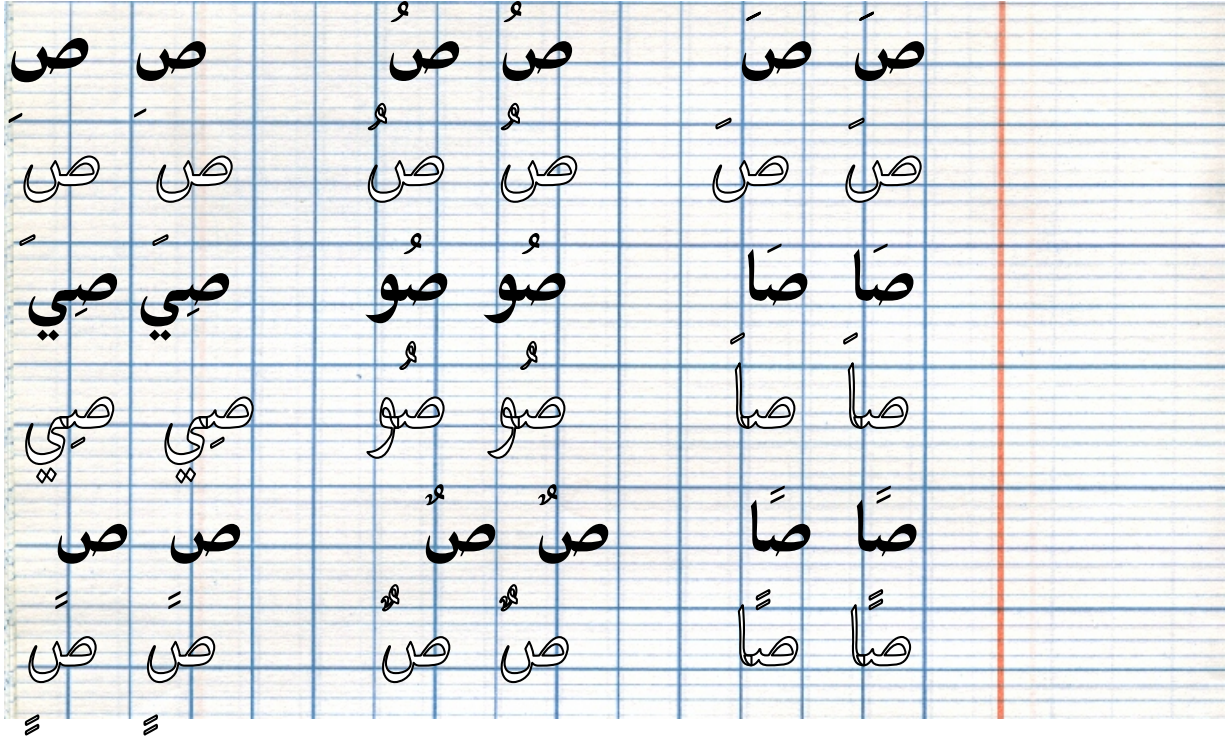 صَ صَ صُ صُ صِ صِ
صَ صَ صُ صُ صِ صِ
صَا صَا صُو صُو صِي صِي
صَا صَا صُو صُو صِي صِي
صًا صًا صٌ صٌ صٍ صٍ
صًا صًا صٌ صٌ صٍ صٍ